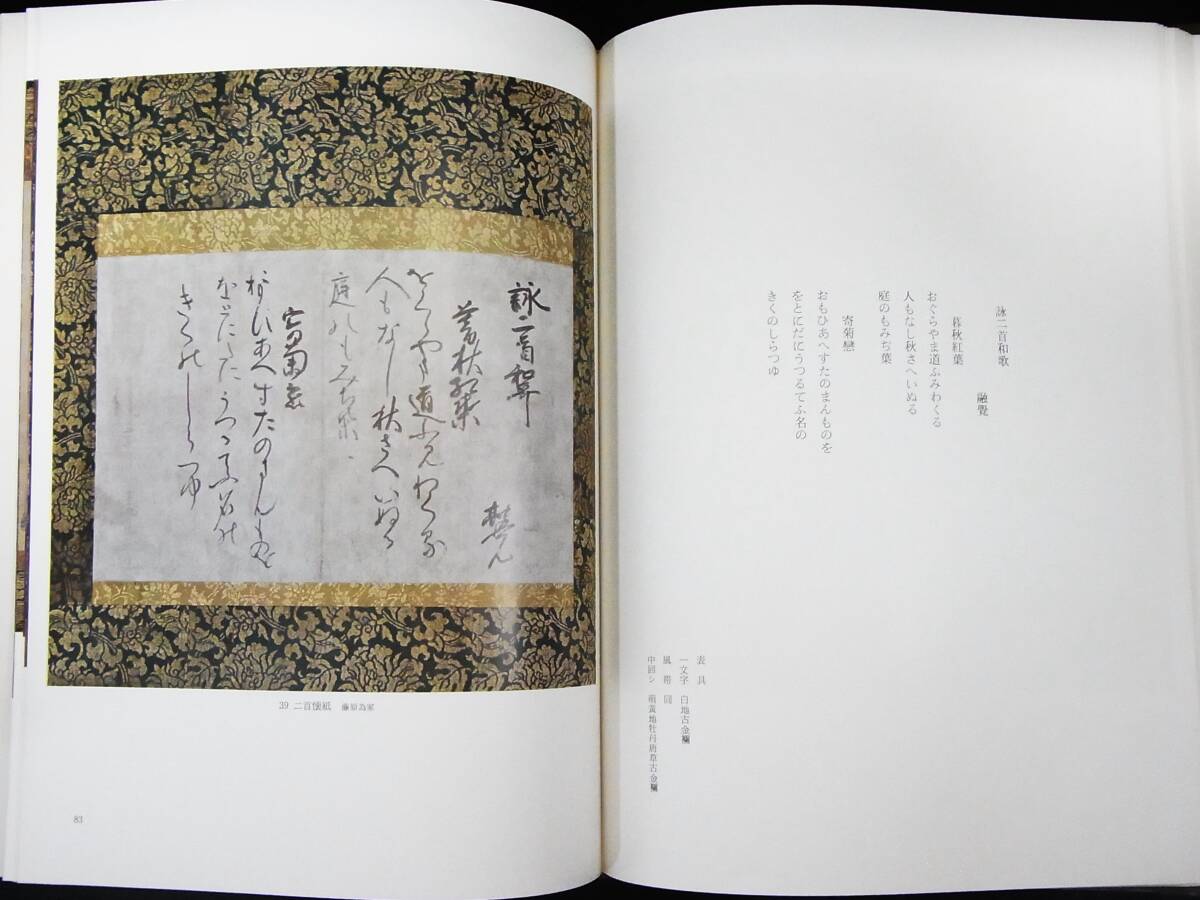 詠二首和歌
融覺
暮秋紅葉
おぐらやま道ふみわくる
人もなし秋さへいぬる
庭のもみぢ葉
寄菊戀
おもひあへすたのまんものを
をとにだにうつるてふ名の
きくのしらつゆ
表具
一文字 白地古金襴
風帯 同
中回シ 萌黄地牡丹唐草古金襴
詠二首和哥
暮秋紅葉
をくらやま道ふみわくる
人もなし秋さへいぬる
庭のもみち葉
寄菊恋
おもひあへすたのまんものを
をとにたにうつるてふ名の
きくのしらつゆ
39 二首懐紙 藤原為家
83